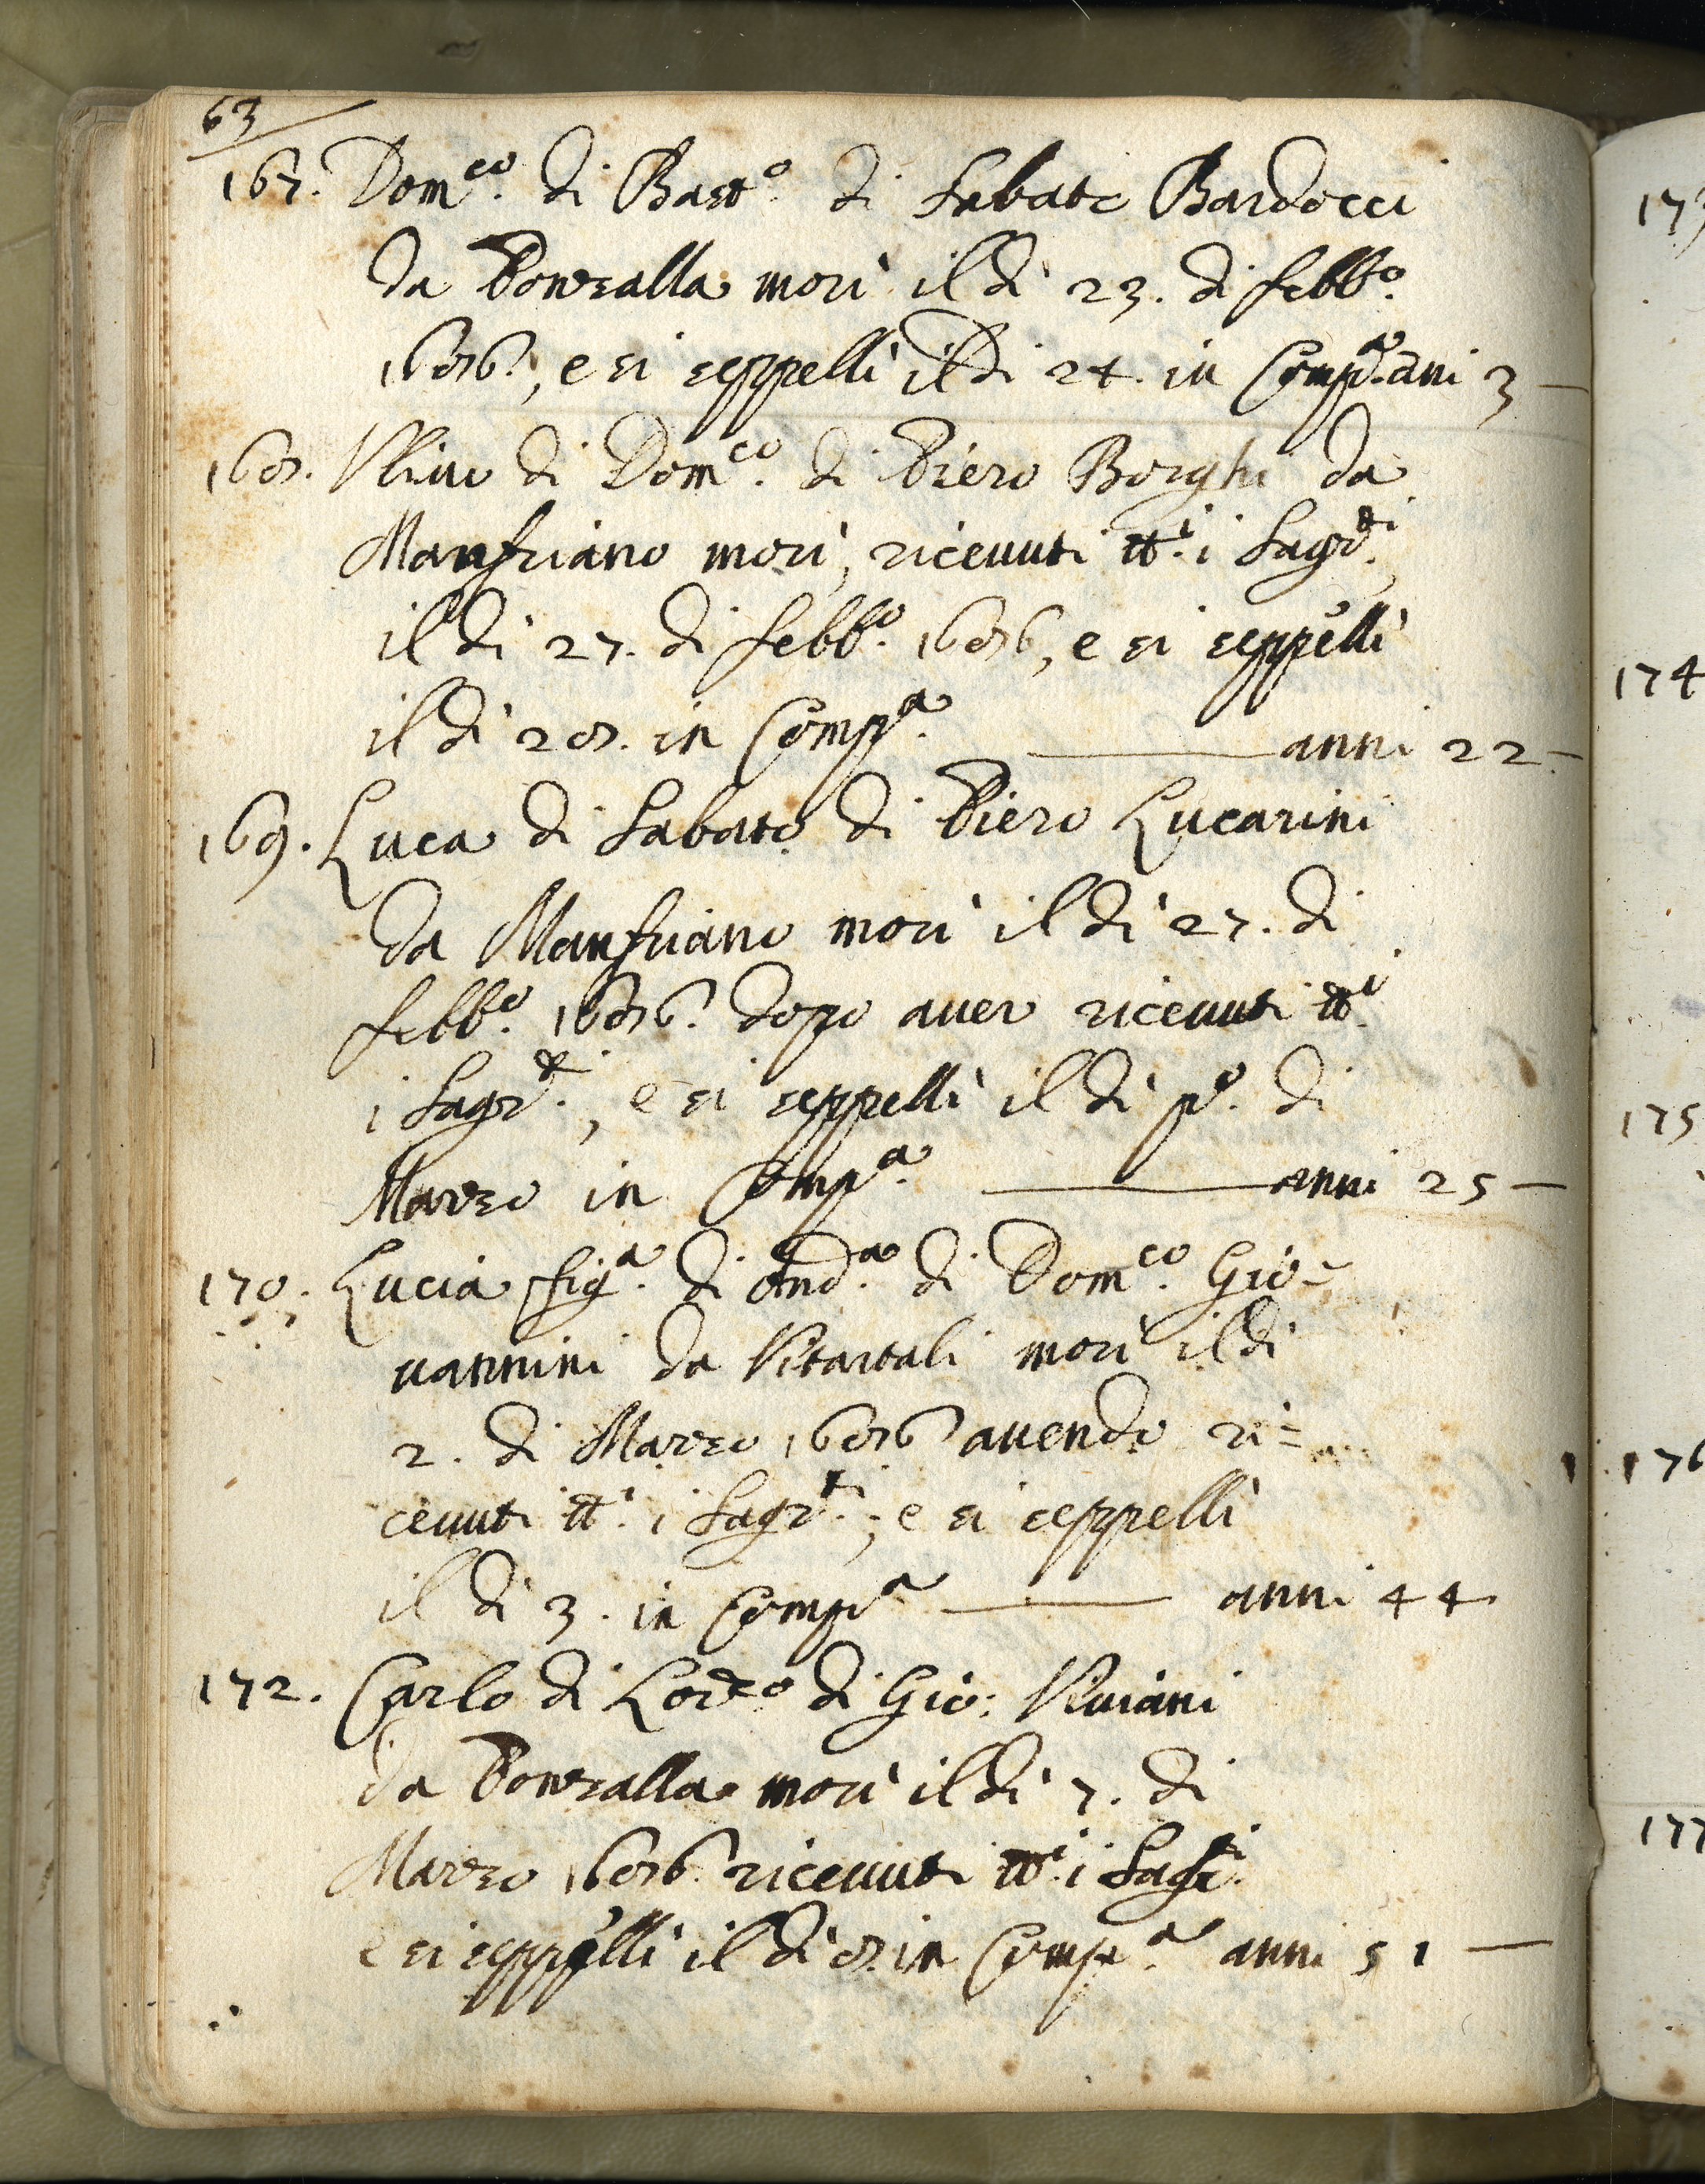 63
167. Dom.co di Bast.o di Sabato Bardocci
da Ponzalla morì il dì 23. di febb.o
1686., e si seppellì il dì 24. in Comp.a ani 3 —
168. Ulivo di Dom.co di Piero Borghi da
Manfriano morì, ricevuti tt.i i Sagr.ti
il dì 27. di febb.o 1686, e si seppellì
il dì 28. in Comp.a — anni 22 —
169. Luca di Sabato di Piero Lucarini
da Manfriano morì il dì 27. di
febb.o 1686. dopo aver ricevuti tt.i
i Sagr.ti, e si seppellì il dì p.o di
Marzo in Comp.a — anni 25 —
170. Lucia fig.a di And.a di Dom.co Gio=
vannini da Vitartali morì il dì
2. di Marzo 1686 avendo ri=
cevuti tt.i i Sagr.ti; e si seppellì
il dì 3. in Comp.a — anni 44
172. Carlo di Lor.zo di Gio: Viviani
da Ponzalla morì il dì 7. di
Marzo 1686. ricevuti tt.i i Sagr.ti
e si seppellì il dì 8. in Comp.a anni 51 —
173
174
175
176
177